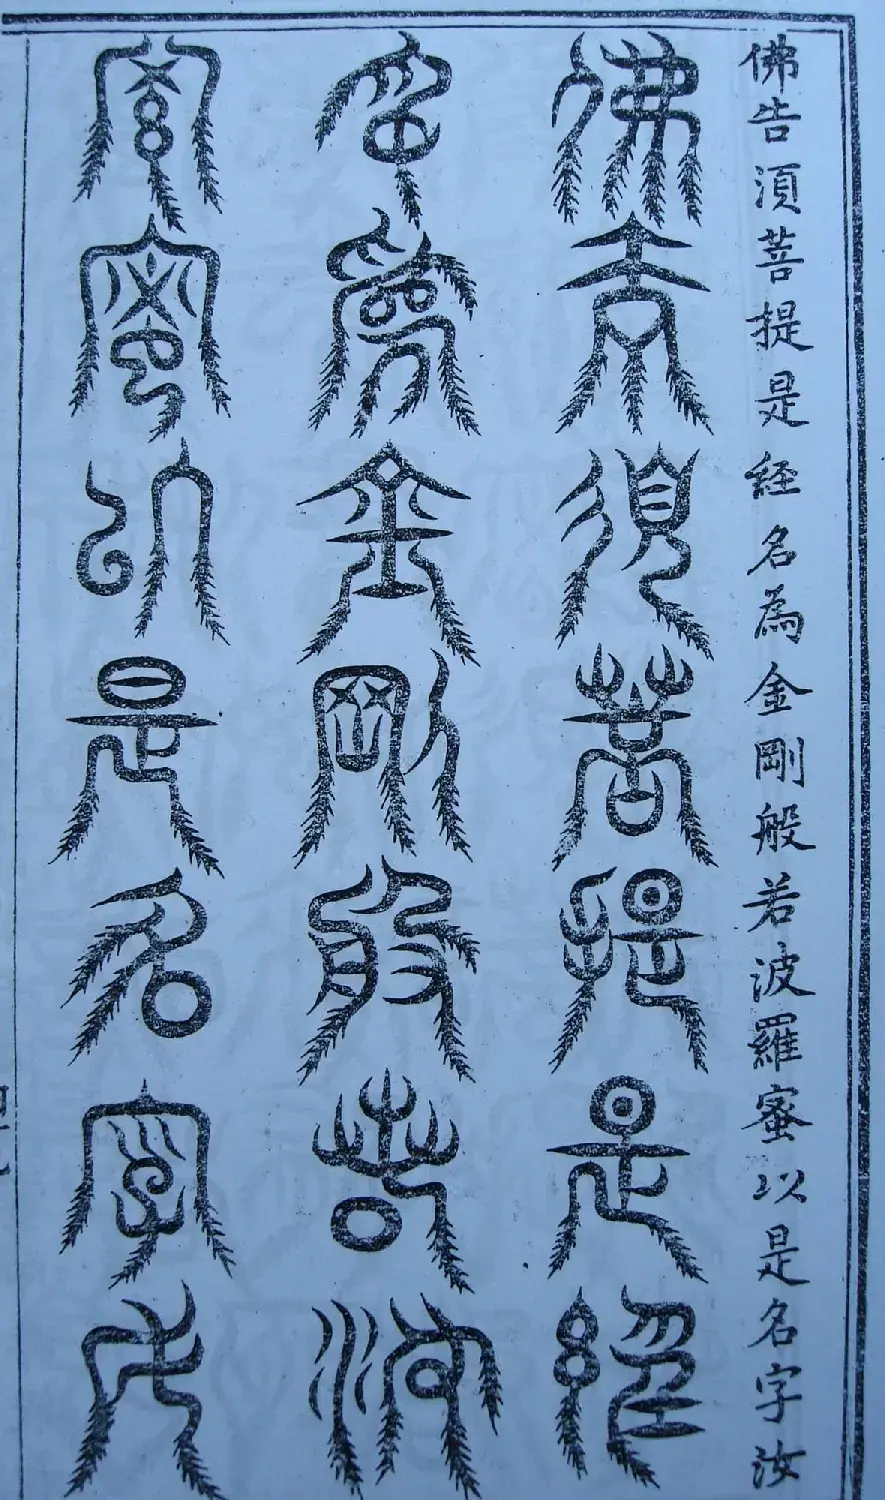 佛告湏菩提是経名為金剛般若波羅蜜以是名字汝
佛告須菩提是經
名為金剛般若波
羅蜜以是名字汝